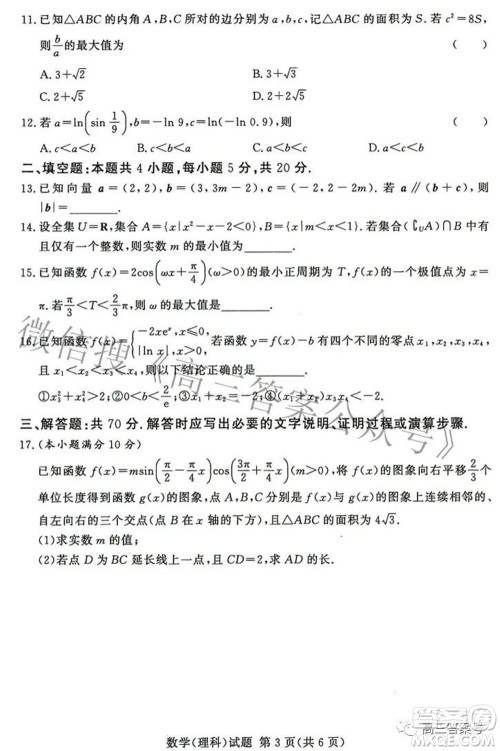 11. 已知△ABC的内角A,B,C所对的边分别为a,b,c,记△ABC的面积为S.若c²=8S,
则b/a的最大值为 ( )
A. 3+√2 B. 3+√3
C. 2+√5 D. 2+√6
12. 若a=ln(sin 1/9),b=-ln 9,c=ln(-ln 0.9),则 ( )
A. b<a<c B. c<b<a C. b<c<a D. a<b<c
二、填空题:本题共4小题,每小题5分,共20分.
13. 已知向量 a=(2,2),b=(3,3m-2),c=(m-1,-1).若a∥(b+c),则
|b|=________.
14. 设全集U=R,集合A={x|x²-x-2<0},B={x|m<x<1}.若集合(∁UA)∩B中有
且仅有一个整数,则实数m的最小值为________.
15. 已知函数f(x)=2cos(ωx+π/4)(ω>0)的最小正周期为T,f(x)的一个极值点为x=
π.若π/3<T<2/3π,则ω的最大值是________.
16. 已知函数f(x)={-2xeˣ,x≤0, |ln x|,x>0, 若函数g(x)=f(x)-b有四个不同的零点x₁,x₂,x₃,x₄,
且x₁<x₂<x₃<x₄,则以下结论正确的是________.
①x₃²+x₄²>2 ②0<b<2/e ③x₁+x₂=-2 ④(x₁+x₂)x₃x₄<-2
三、解答题:共70分.解答时应写出必要的文字说明、证明过程或演算步骤.
17. (本小题满分10分)
已知函数f(x)=msin(π/2-π/2x)cos(3π/2+π/2x)(m>0),将f(x)的图象向右平移2/3个
单位长度后得到函数g(x)的图象,点A,B,C分别是f(x)与g(x)图象上连续相邻的、
自左向右的三个交点(点B在x轴的下方),且△ABC的面积为4√3.
(1)求实数m的值;
(2)若点D为BC延长线上一点,且CD=2,求AD的长.
数学(理科)试题 第3页(共6页)
微信搜《高三答案公众号》
高三答案号